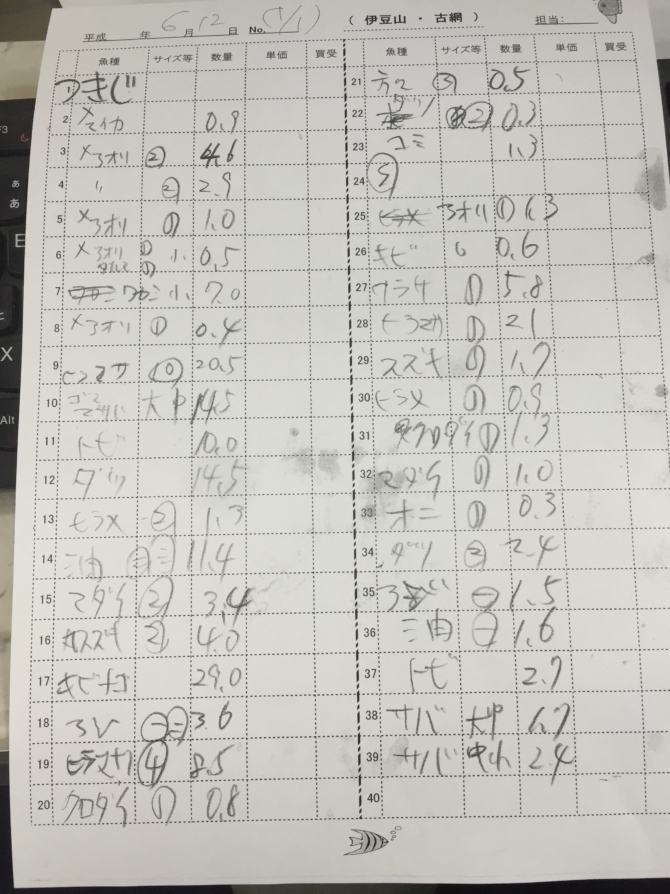 平成 年 6月 12日 No. (1/1) ( 伊豆山 ・ 古網 ) 担当:
魚種 サイズ等 数量 単価 買受
1 つきじ
2 メマイカ 0.9
3 メアオリ ② 4.6
4 〃 ② 2.9
5 メアオリ ① 1.0
6 メアオリ ① 小 0.5
7 ワカシ小 7.0
8 メアオリ ① 0.4
9 ヒラマサ ⑩ 20.5
10 ゴマサバ 大中 14.5
11 トビ 10.0
12 ダツ 14.5
13 ヒラメ ② 1.3
14 三由 11.4
15 マダイ ② 3.4
16 スズキ ② 4.0
17 キビナゴ 29.0
18 アジ 3.6
19 ヒラマサ ④ 8.5
20 クロダイ ① 0.8
魚種 サイズ等 数量 単価 買受
21 ③ 0.5
22 ダツ ② 0.3
23 コミ 1.3
24
25 アオリ ① 1.3
26 0.6
27 ワラサ ① 5.8
28 ヒラマサ ① 2.1
29 スズキ ① 1.7
30 ヒラメ ① 0.9
31 クロダイ ① 1.3
32 マダイ ① 1.0
33 オニ ① 0.3
34 ダツ ② 2.4
35 1.5
36 三由 ㊀ 1.6
37 トビ 2.7
38 サバ 大中 1.7
39 サバ 中小 2.4
40